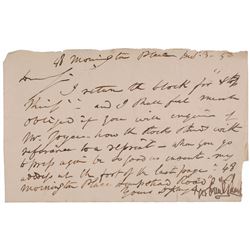 48 Mornington Place
I return the block for "Stop
Thief" - and I shall feel much
obliged if you will enquire of
Mr. how the book stands with
reference to a reprint - when you go
to press again be so good as insert my
address at the foot of the last page - 48
Mornington Place Hampstead Road
Yours